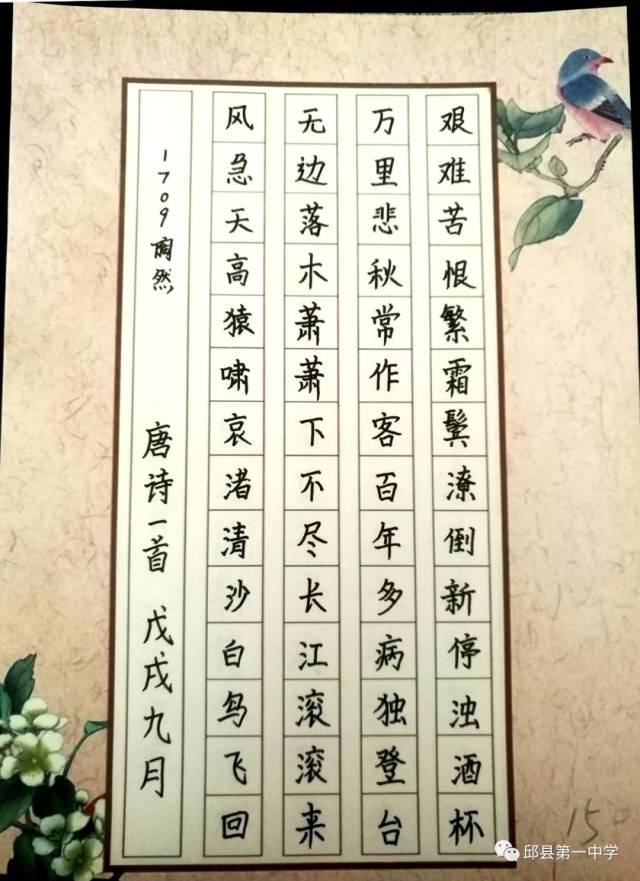 风急天高猿啸哀渚清沙白鸟飞回
无边落木萧萧下不尽长江滚滚来
万里悲秋常作客百年多病独登台
艰难苦恨繁霜鬓潦倒新停浊酒杯
1709 陶然 唐诗一首 戊戌九月
15
邱县第一中学